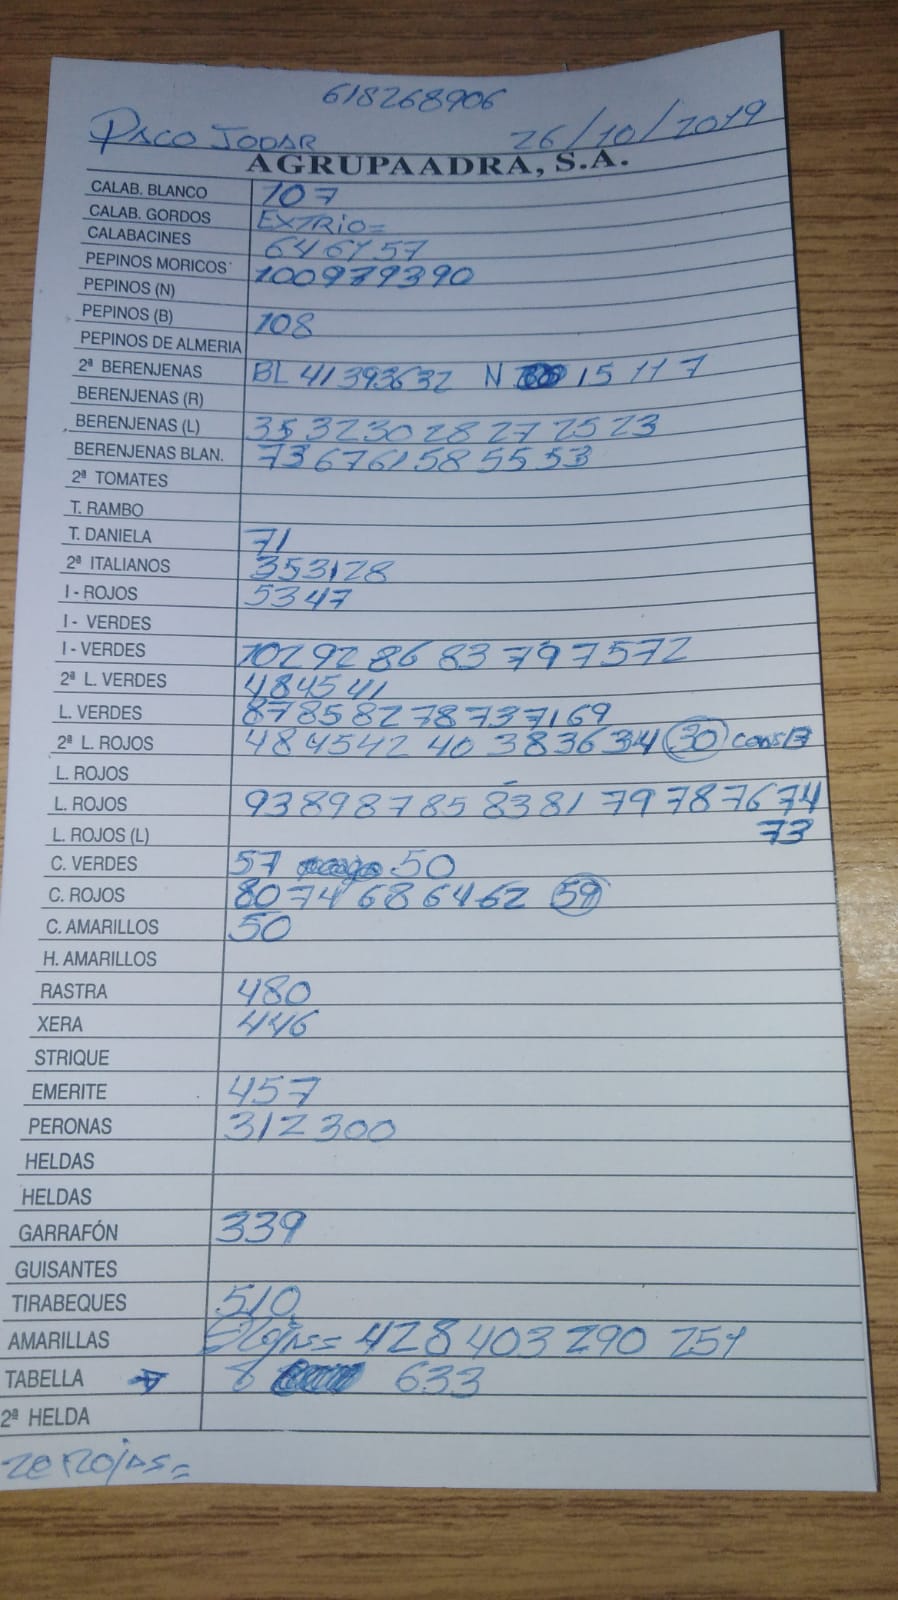 618268906
PACO JODAR 26/10/2019
AGRUPAADRA, S.A.
CALAB. BLANCO 107
CALAB. GORDOS EXTRIO=
CALABACINES 64 61 57
PEPINOS MORICOS 100 97 93 90
PEPINOS (N)
PEPINOS (B) 108
PEPINOS DE ALMERIA
2ª BERENJENAS BL 41 39 36 32 N 15 11 7
BERENJENAS (R)
BERENJENAS (L) 35 32 30 28 27 25 23
BERENJENAS BLAN. 73 67 61 58 55 53
2ª TOMATES
T. RAMBO
T. DANIELA 71
2ª ITALIANOS 35 31 28
I - ROJOS 53 47
I - VERDES
I - VERDES 102 92 86 83 79 75 72
2ª L. VERDES 48 45 41
L. VERDES 87 85 82 78 73 71 69
2ª L. ROJOS 48 45 42 40 38 36 34 30
L. ROJOS
L. ROJOS 93 89 87 85 83 81 79 78 76 74
L. ROJOS (L) 73
C. VERDES 57 50
C. ROJOS 80 74 68 64 62 59
C. AMARILLOS 50
H. AMARILLOS
RASTRA 480
XERA 446
STRIQUE
EMERITE 457
PERONAS 312 300
HELDAS
HELDAS
GARRAFÓN 339
GUISANTES
TIRABEQUES 510
AMARILLAS 428 403 290 251
TABELLA 8 633
2ª HELDA
ROJAS=